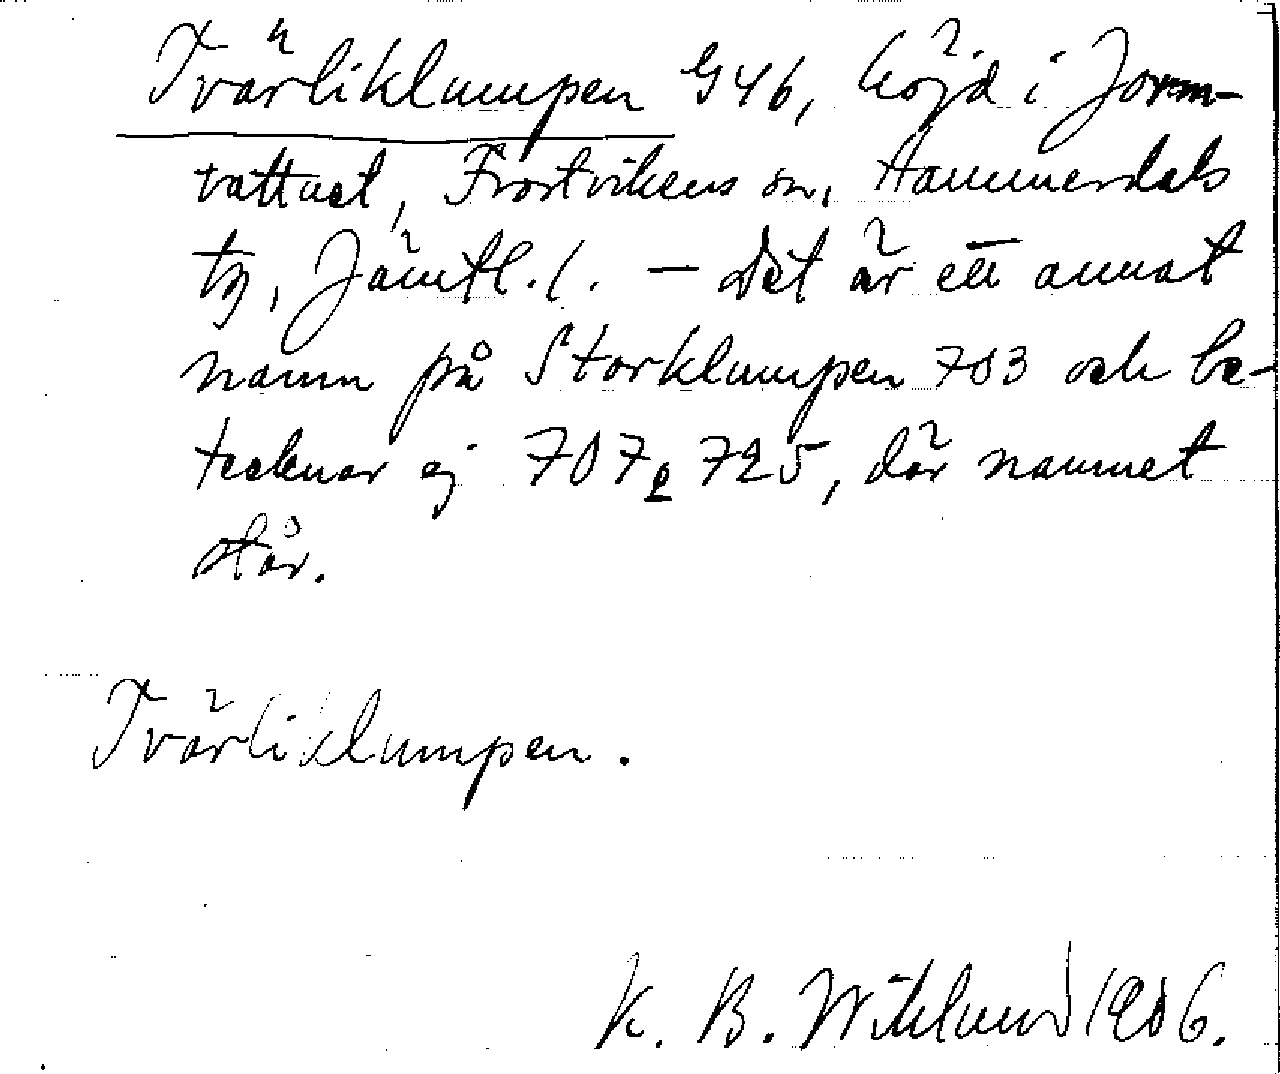 Tvärliklumpen G46, höjd i Jorm-
vattnet, Frostvikens sn, Hammerdals
tg, Jämtl. l. — Det är ett annat
namn på Storklumpen 703 och be-
tecknar ej 707 e 725, där namnet
står.
Tvärliklumpen.
K. B. Wiklund 1906.